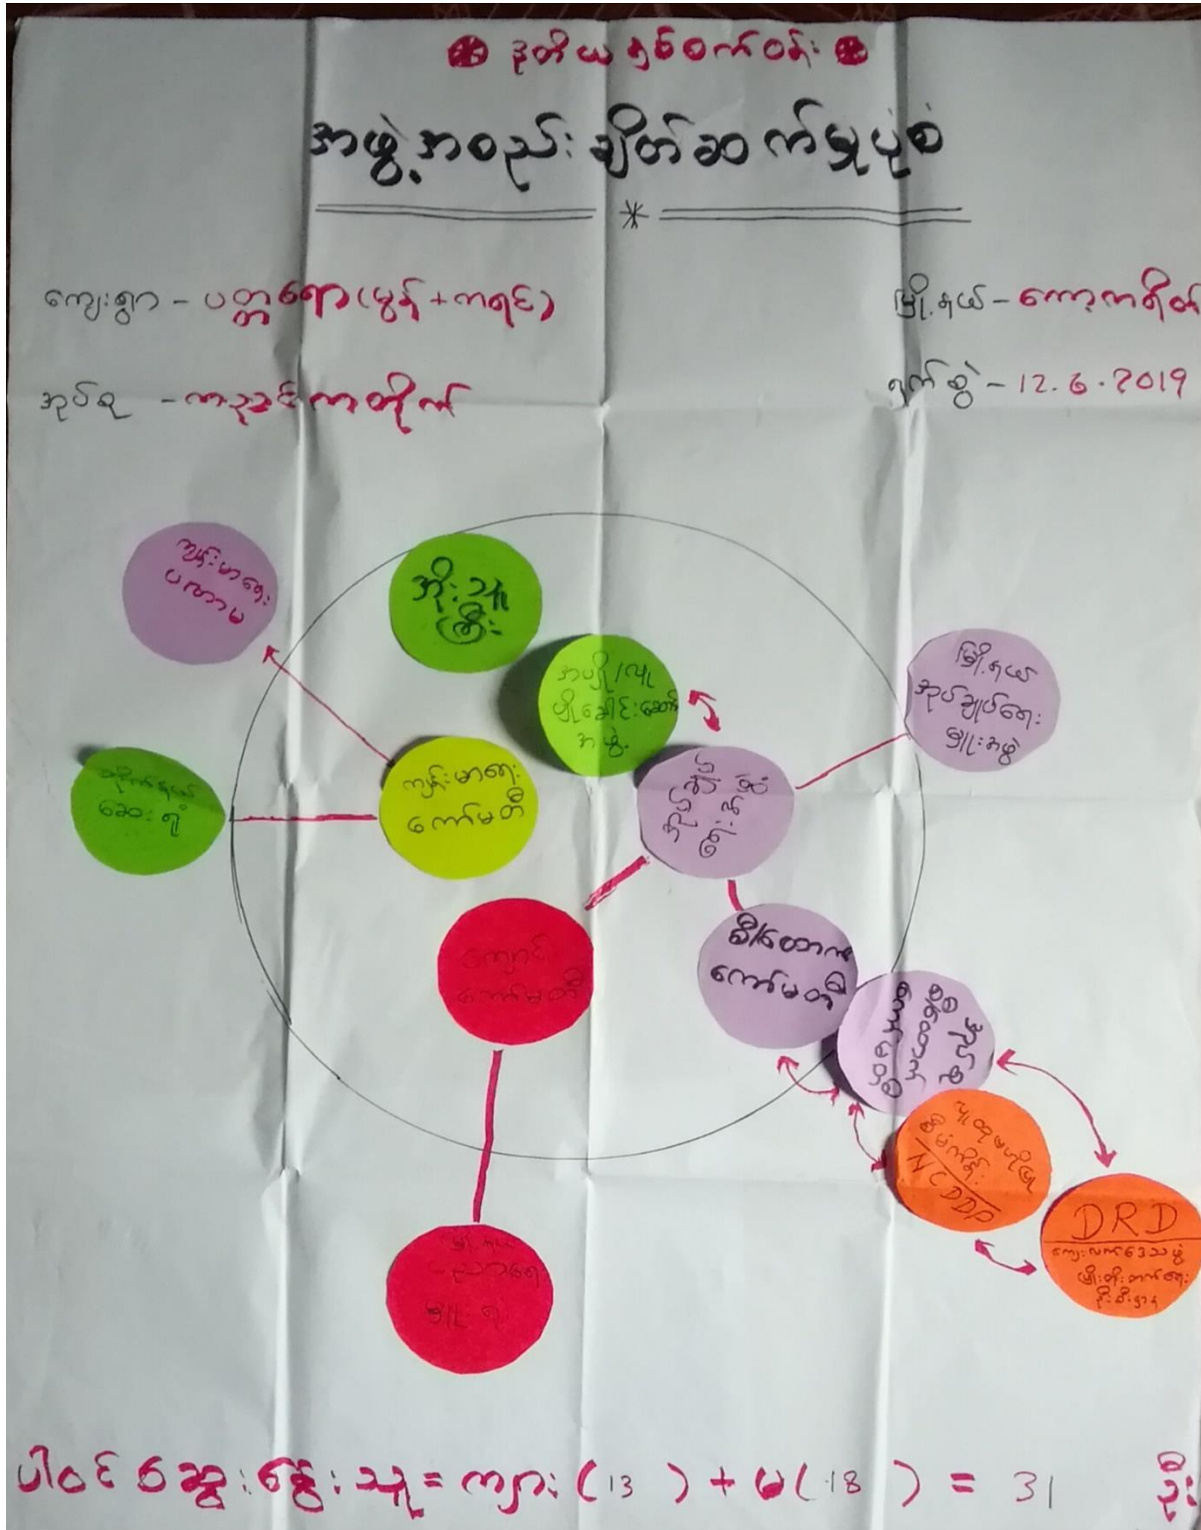 ဒုတိယနှစ်စက်ဝန်း
အဖွဲ့အစည်းချိတ်ဆက်မှုပုံစံ
ကျေးရွာ - ပတ္တရော (မွန် + ကရင်)
မြို့နယ် - ကော့ကရိတ်
အုပ်စု - ကညင်ကတိုက်
ရက်စွဲ - 12.6.2019
ကျန်းမာရေး
အိုးသူ
ကြီး
အပျို/လူ
ပျိုခေါင်းဆောင်
အဖွဲ့
မြို့နယ်
အုပ်ချုပ်ရေး
မှူးအဖွဲ့
ဆေးရုံ
ကျန်းမာရေး
ကော်မတီ
ကျောင်း
ကော်မတီ
စီ/ထောက်
ကော်မတီ
အုပ်စု
စီ/ထောက်
ကော်မတီ
NCDDP
DRD
ကျေးလက်ဒေသဖွံ့
ဖြိုးတိုးတက်ရေး
ဦးစီးဌာန
မြို့နယ်
ပညာရေး
မှူးရုံး
ပါဝင်ဆွေးနွေးသူ = ကျား (13) + မ (18) = 31 ဦး